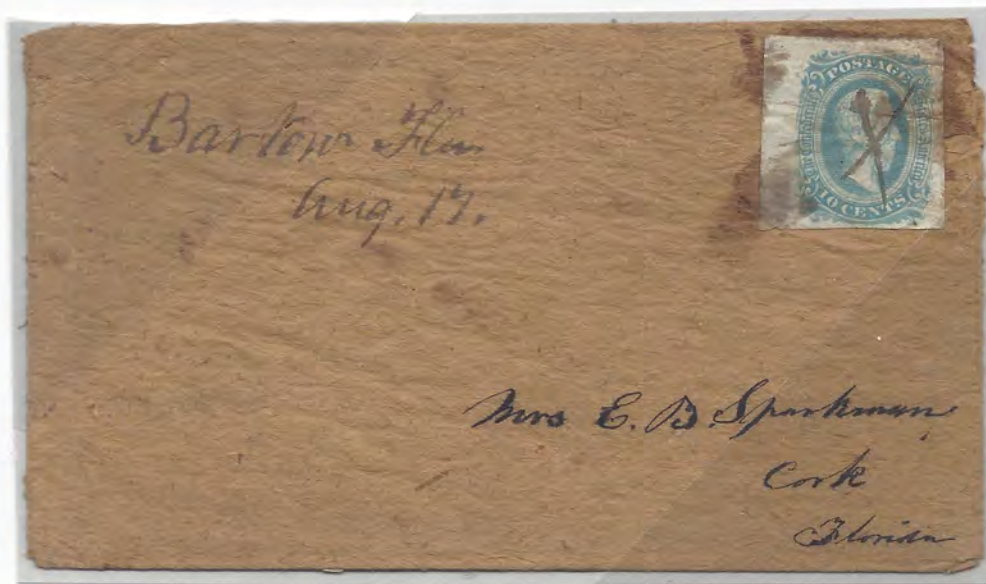 Bartow Fla
Aug. 17.
POSTAGE
10 CENTS
Mrs E. B. Sparkman
Cork
Florida